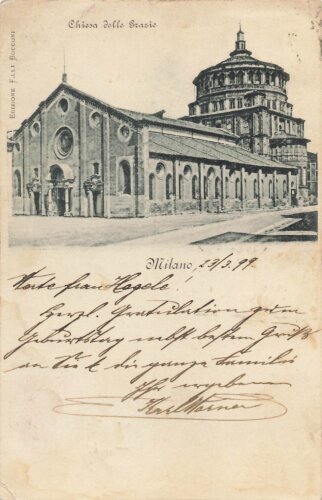 Chiesa delle Grazie
EDIZIONE F.LLI BOCCONI
Milano, 23/3.99.
Werte frau Hagele!
Herzl. Gratulation zum
Geburtstag nebst besten Grüß
an Sie & die ganze Familie
Ihr ergebener
Karl Werner